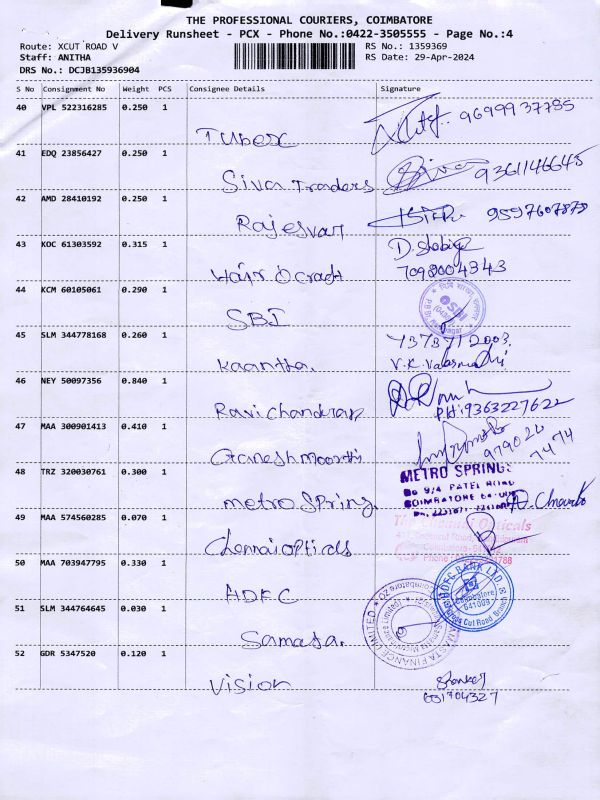 THE PROFESSIONAL COURIERS, COIMBATORE
Delivery Runsheet - PCX - Phone No.:0422-3505555 - Page No.:4
Route: XCUT ROAD V
RS No.: 1359369
Staff: ANITHA
RS Date: 29-Apr-2024
DRS No.: DCJB135936904
S No Consignment No Weight PCS Consignee Details Signature
40 VPL 522316285 0.250 1
Tubex 9699937785
41 EDQ 23856427 0.250 1
Siva Traders 9361146645
42 AMD 28410192 0.250 1
Rajesvari 9597607879
43 KOC 61303592 0.315 1
D. Shobiga
Hair O Craft 7098004343
44 KCM 60105061 0.290 1
SBI
45 SLM 344778168 0.260 1
Kaantha.
46 NEY 50097356 0.840 1
Ravichandran PH:9363227622
47 MAA 300901413 0.410 1
Ganesh Moorthi 979026
7474
48 TRZ 320030761 0.300 1
METRO SPRINGS
No 9/4 PATEL ROAD
COIMBATORE
metro Spring.
49 MAA 574560285 0.070 1
Opticals
Chennai opticals
50 MAA 703947795 0.330 1
HDFC BANK LTD.
Coimbatore
641009
Cut Road Branch
HDFC
51 SLM 344764645 0.030 1
SAMASTA FINANCE LIMITED
Samasta.
52 GDR 5347520 0.120 1
Vision